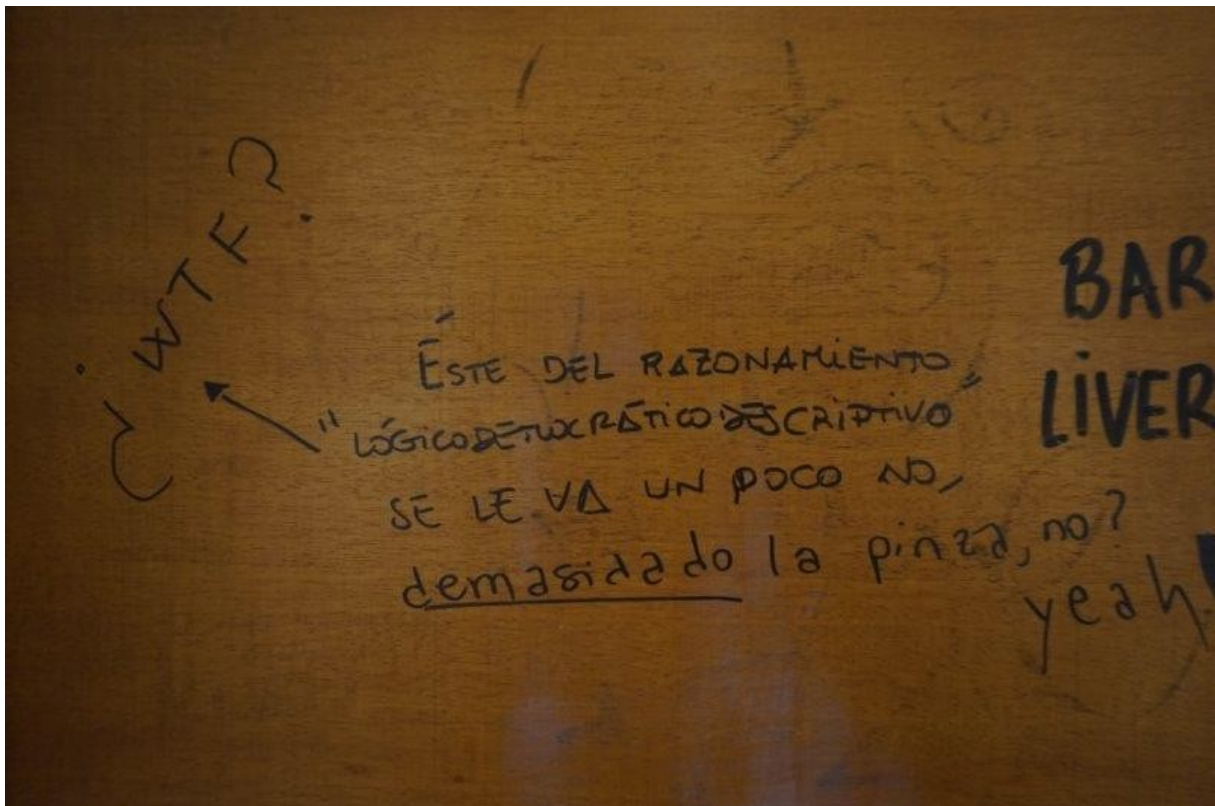 ¿WTF?
ÉSTE DEL RAZONAMIENTO
"LÓGICODEMOCRÁTICODESCRIPTIVO"
SE LE VA UN POCO NO,
demasidado la pinza, no?
yeah!
BAR
LIVER